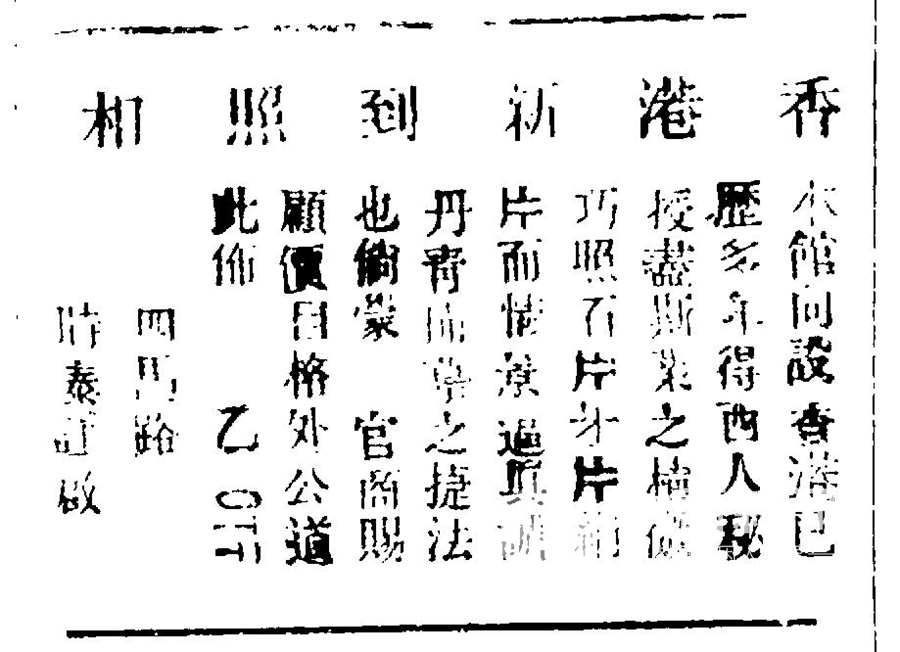 香港新到照相
本館向設香港已
歷多年得西人秘
授盡斯業之精
巧照石片牙片
片而情景逼真誠
丹青之捷法
也倘蒙 官商賜
顧價目格外公道
此佈 乙
四馬路
時泰 啟